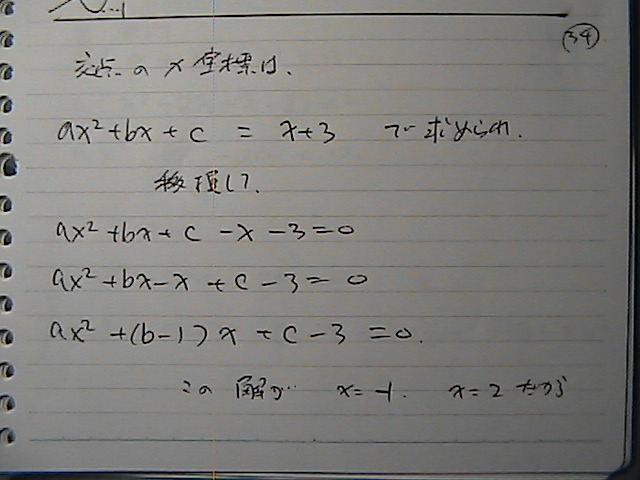 34
交点の x 座標は、
ax²+bx+c = x+3 で求められ.
移項して、
ax²+bx+c-x-3=0
ax²+bx-x+c-3=0
ax²+(b-1)x+c-3=0.
この解が x=-1. x=2 だから